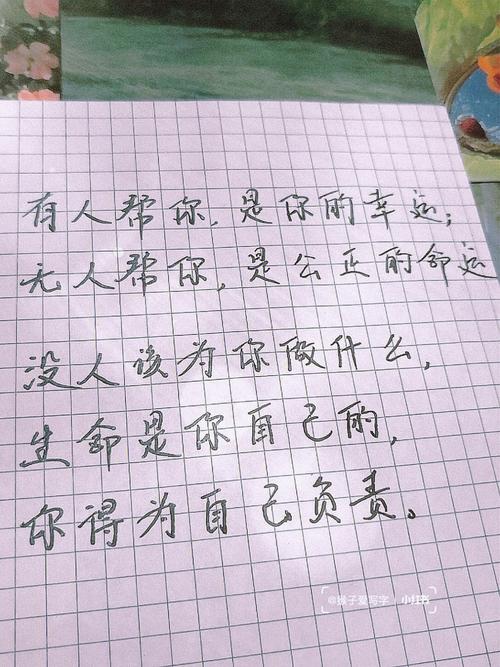 有人帮你,是你的幸运;
无人帮你,是公正的命运
没人该为你做什么,
生命是你自己的,
你得为自己负责。
@猴子爱写字 小红书